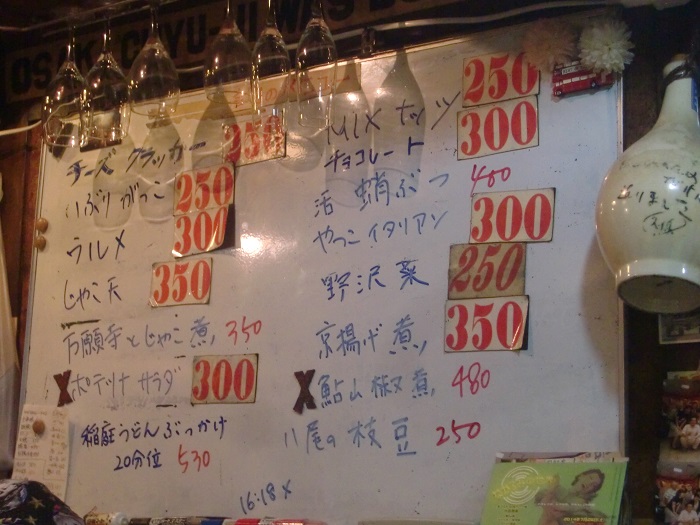 OSAKA CHUYU-JIWAS
チーズ クラッカー 250
いぶりがっこ 250
ウルメ 300
じゃこ天 350
万願寺とじゃこ煮 350
X ポテサラダ 300
稲庭うどんぶっかけ
20分位 530
MIX ナッツ 250
チョコレート 300
活 蛸ぶつ 480
やっこイタリアン 300
野沢菜 250
京揚げ煮 350
X 鮎山椒煮 480
八尾の枝豆 250
16:18 x